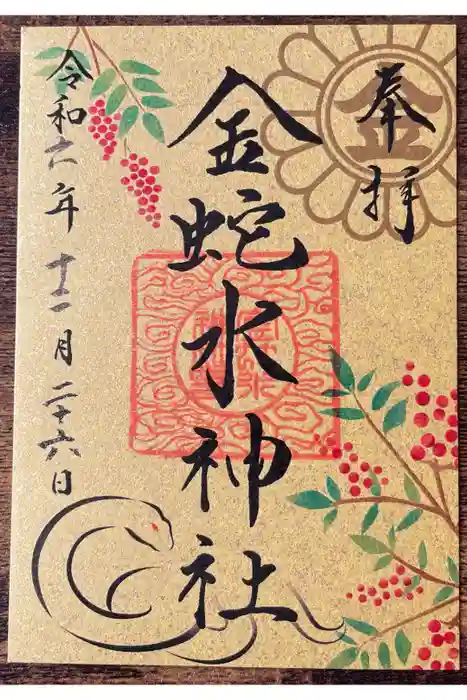 奉拝
金
金蛇水神社
令和六年 十二月 二十六日